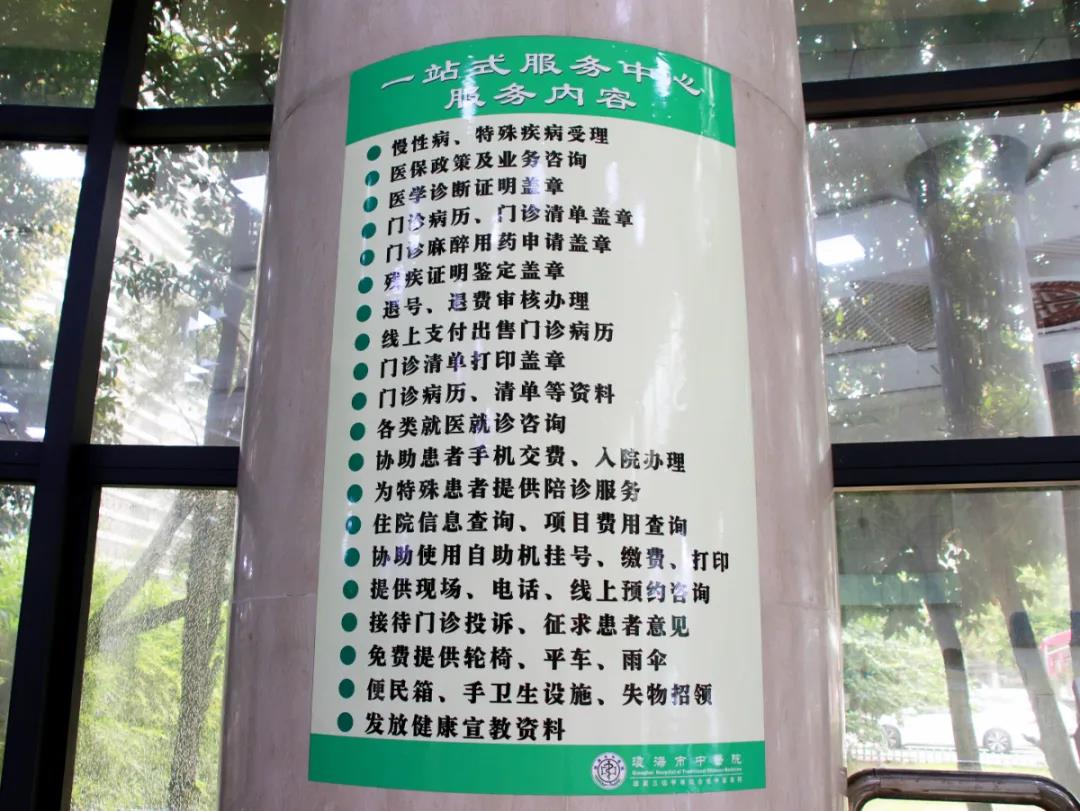 一站式服务中心
服务内容
慢性病、特殊疾病受理
医保政策及业务咨询
医学诊断证明盖章
门诊病历、门诊清单盖章
门诊麻醉用药申请盖章
残疾证明鉴定盖章
退号、退费审核办理
线上支付出售门诊病历
门诊清单打印盖章
门诊病历、清单等资料
各类就医就诊咨询
协助患者手机交费、入院办理
为特殊患者提供陪诊服务
住院信息查询、项目费用查询
协助使用自助机挂号、缴费、打印
提供现场、电话、线上预约咨询
接待门诊投诉、征求患者意见
免费提供轮椅、平车、雨伞
便民箱、手卫生设施、失物招领
发放健康宣教资料
琼海市中醫院
Qionghai Hospital of Traditional Chinese Medicine